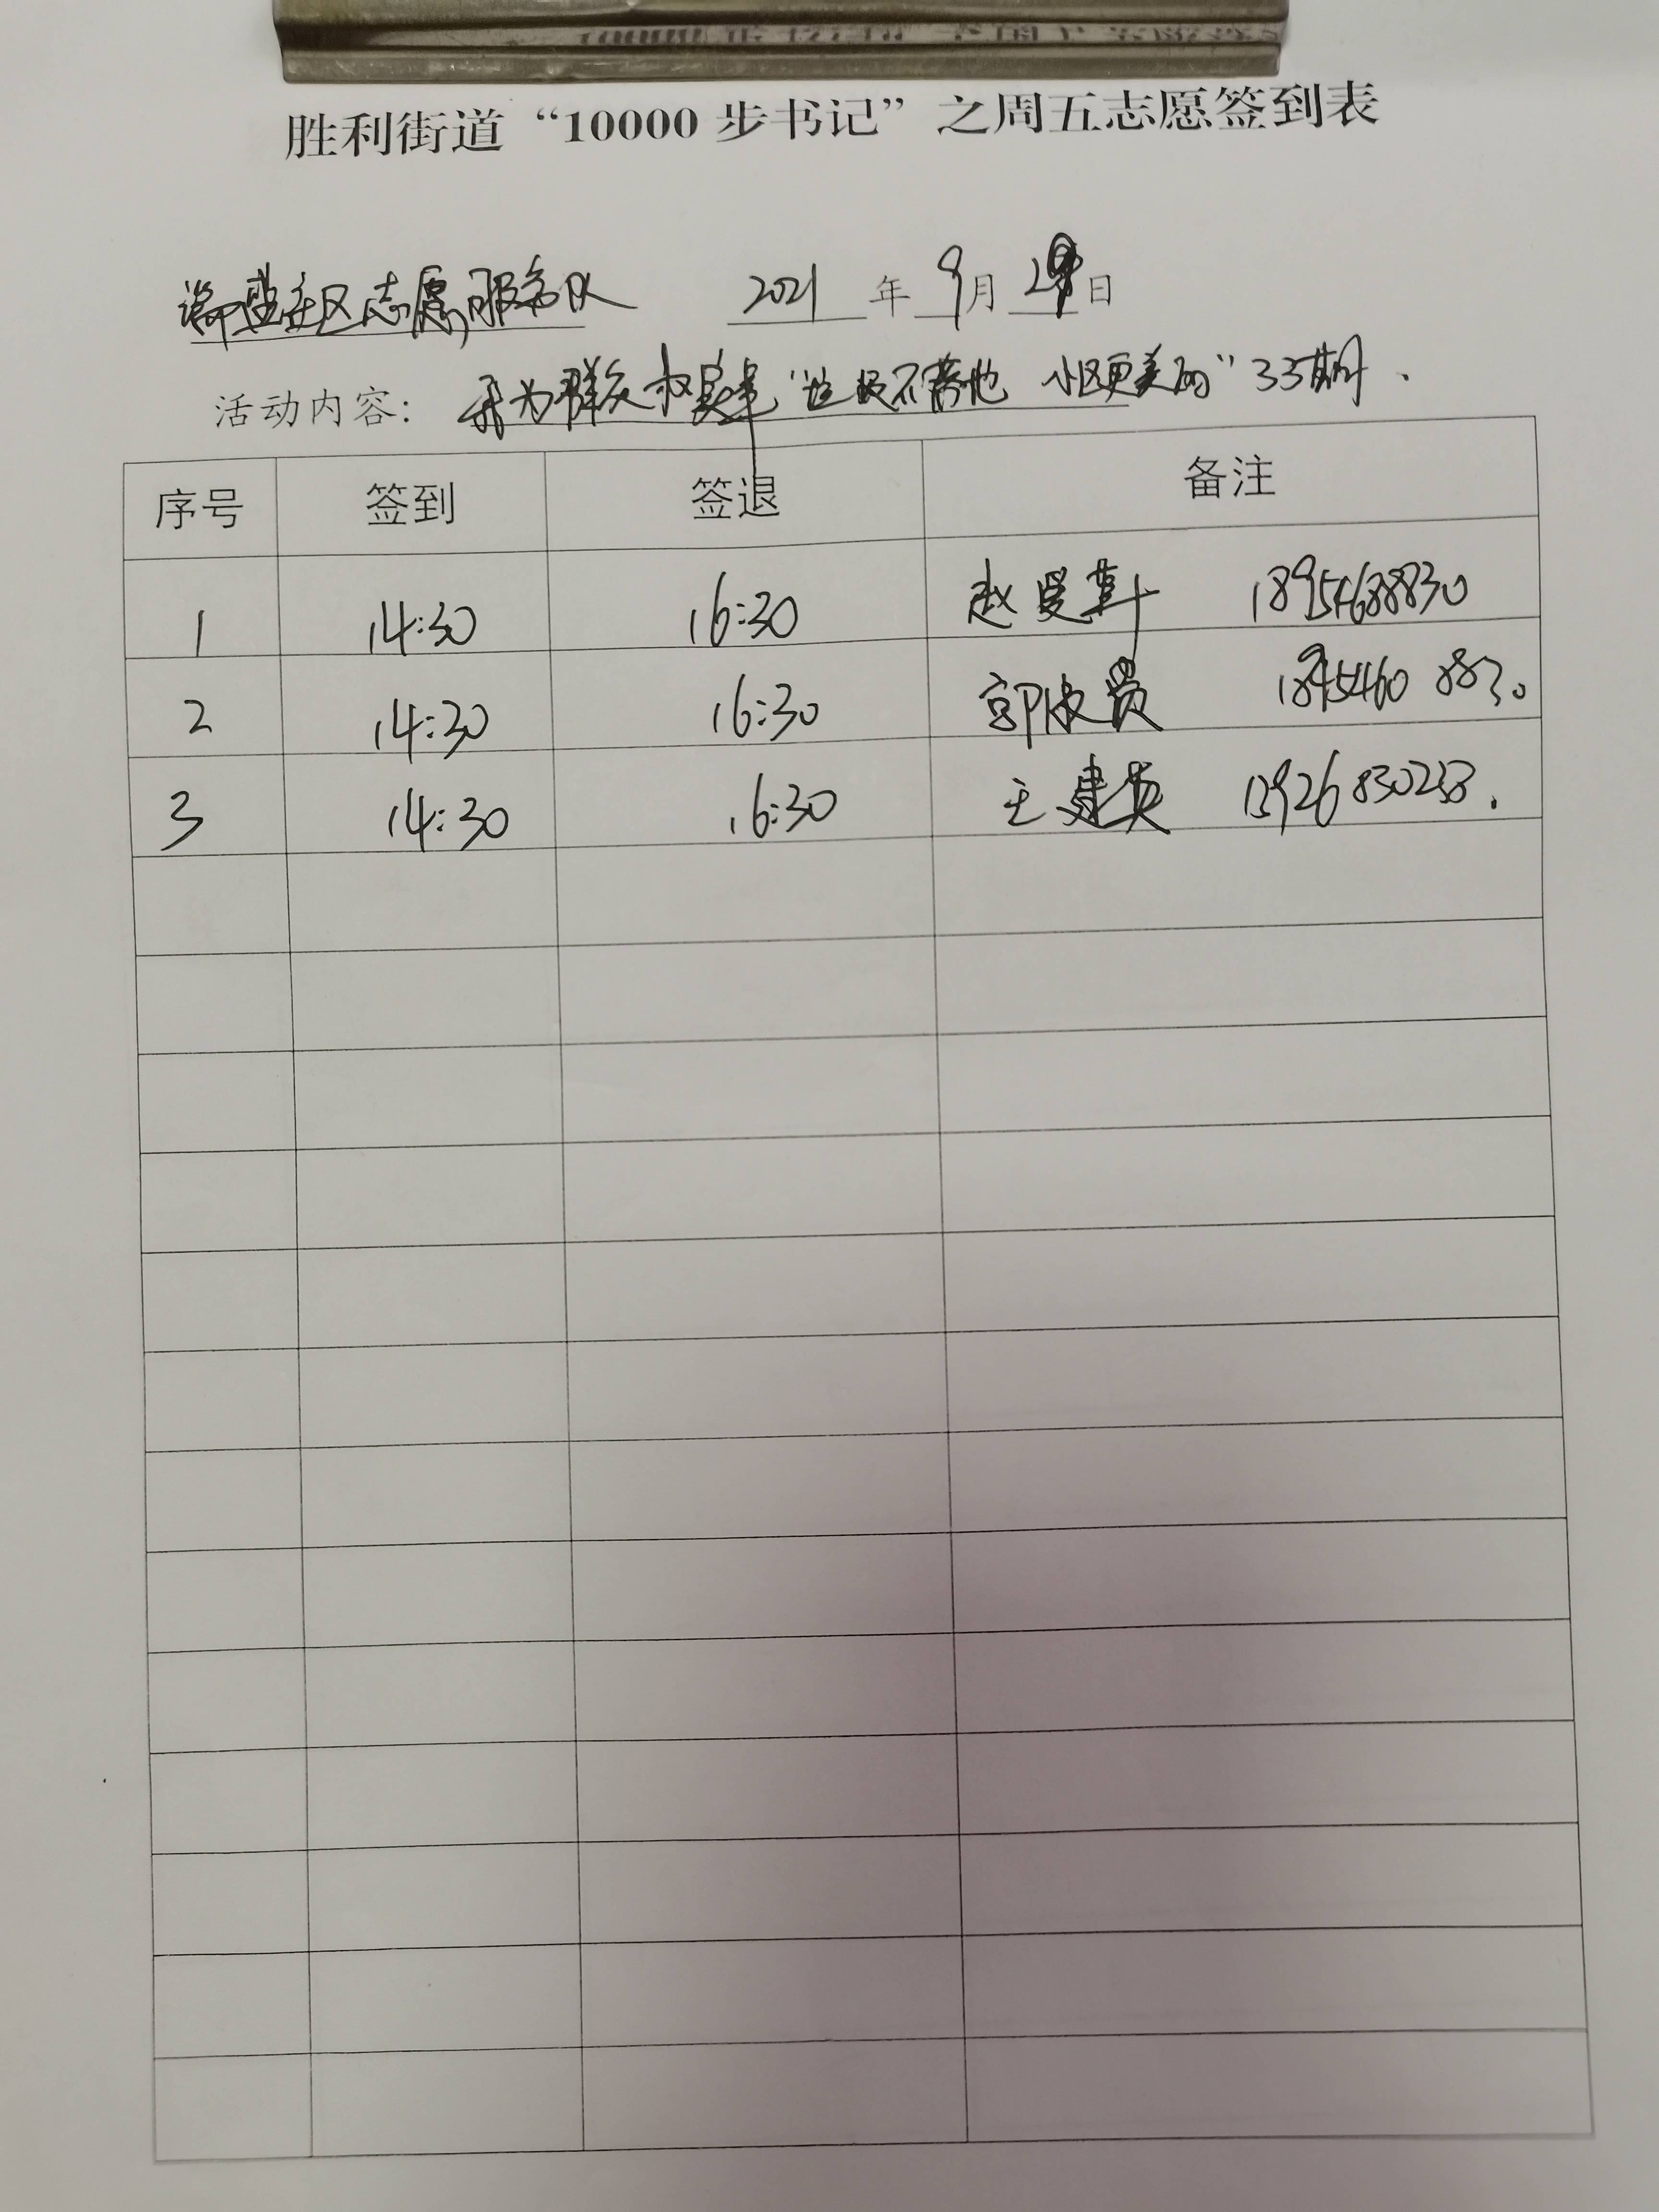 胜利街道“10000步书记”之周五志愿签到表
盛社区志愿服务队 2021年9月日
活动内容：我为群众办实事“垃圾不落地 小区更美丽”33期.
序号 签到 签退 备注
1 14:30 16:30 赵曼 18954688830
2 14:30 16:30 郭 8830
3 14:30 16:30 王建英